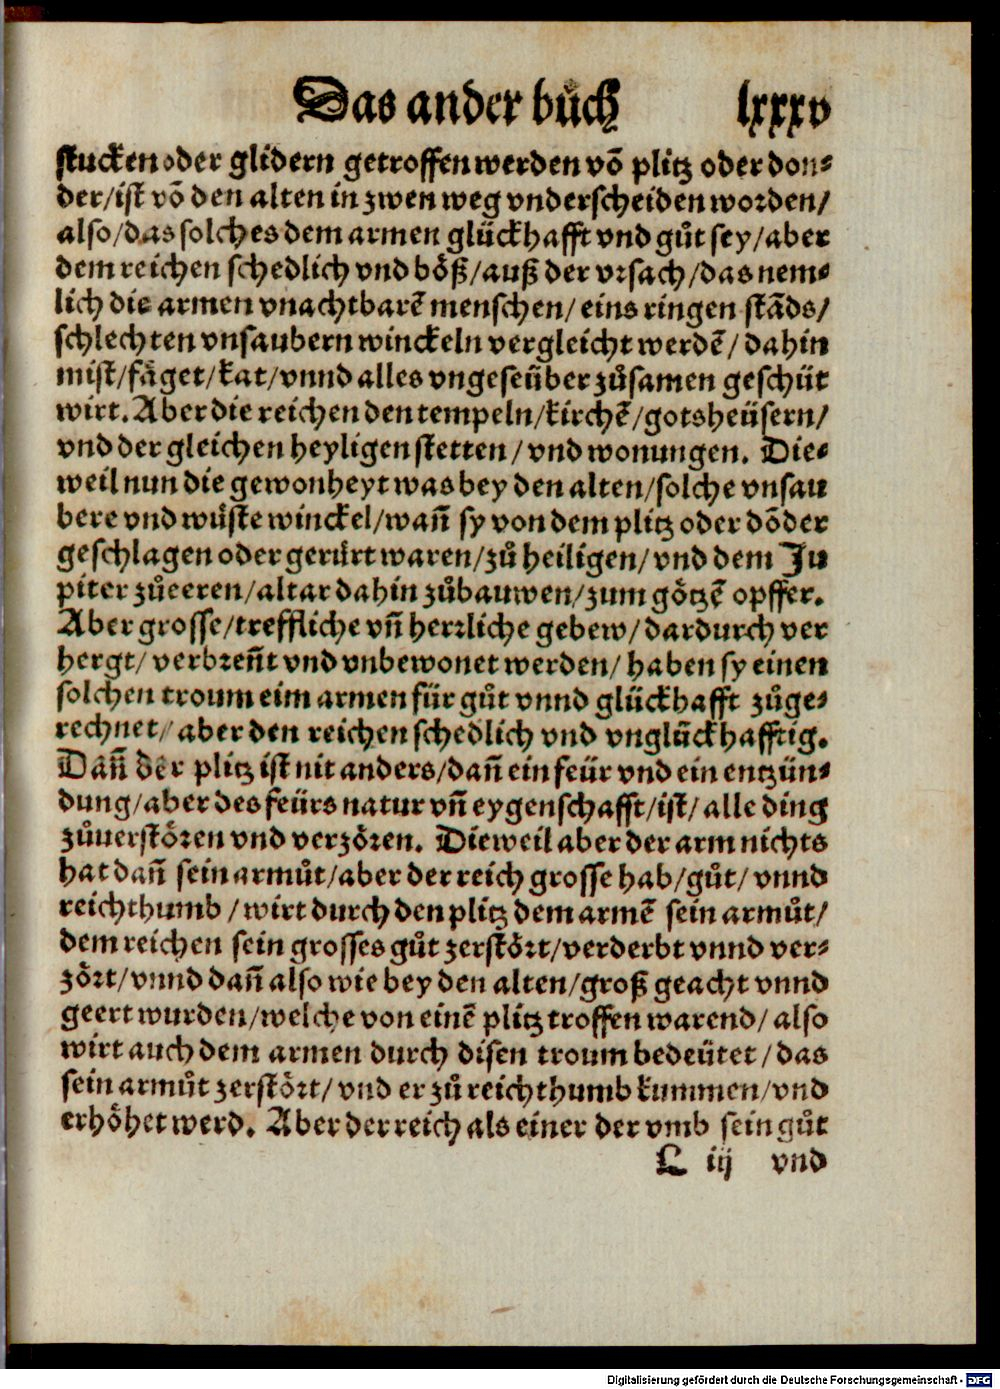 Das ander bůch lxxxv
stucken oder glidern getroffen werden võ plitz oder don⸗
der/ist võ den alten in zwen weg vnderscheiden worden/
also/das solches dem armen glückhafft vnd gůt sey/aber
dem reichen schedlich vnd böß/auß der vrsach/das nem⸗
lich die armen vnachtbarẽ menschen/eins ringen stãds/
schlechten vnsaubern winckeln vergleicht werdẽ/dahin
mist/fäget/kat/vnnd alles vngeseüber zůsamen geschüt
wirt. Aber die reichen den tempeln/kirchẽ/gotsheüsern/
vnd der gleichen heyligen stetten/vnd wonungen. Die⸗
weil nun die gewonheyt was bey den alten/solche vnsau
bere vnd wüste winckel/wañ sy von dem plitz oder dõder
geschlagen oder gerürt waren/zů heiligen/vnd dem Ju
piter zůeeren/altar dahin zůbauwen/zum götzẽ opffer.
Aber grosse/treffliche vñ herrliche gebew/dardurch ver
hergt/verbreñt vnd vnbewonet werden/haben sy einen
solchen troum eim armen für gůt vnnd glückhafft zůge⸗
rechnet/aber den reichen schedlich vnd vnglückhafftig.
Dañ der plitz ist nit anders/dañ ein feür vnd ein entzün⸗
dung/aber des feürs natur vñ eygenschafft/ist/alle ding
zůuerstören vnd verzören. Dieweil aber der arm nichts
hat dañ sein armůt/aber der reich grosse hab/gůt/vnnd
reichthumb/wirt durch den plitz dem armẽ sein armůt/
dem reichen sein grosses gůt zerstört/verderbt vnnd ver⸗
zört/vnnd dañ also wie bey den alten/groß geacht vnnd
geert wurden/welche von einẽ plitz troffen warend/also
wirt auch dem armen durch disen troum bedeütet/das
sein armůt zerstört/vnd er zů reichthumb kummen/vnd
erhöhet werd. Aber der reich als einer der vmb sein gůt
L iij vnd
Digitalisierung gefördert durch die Deutsche Forschungsgemeinschaft - DFG